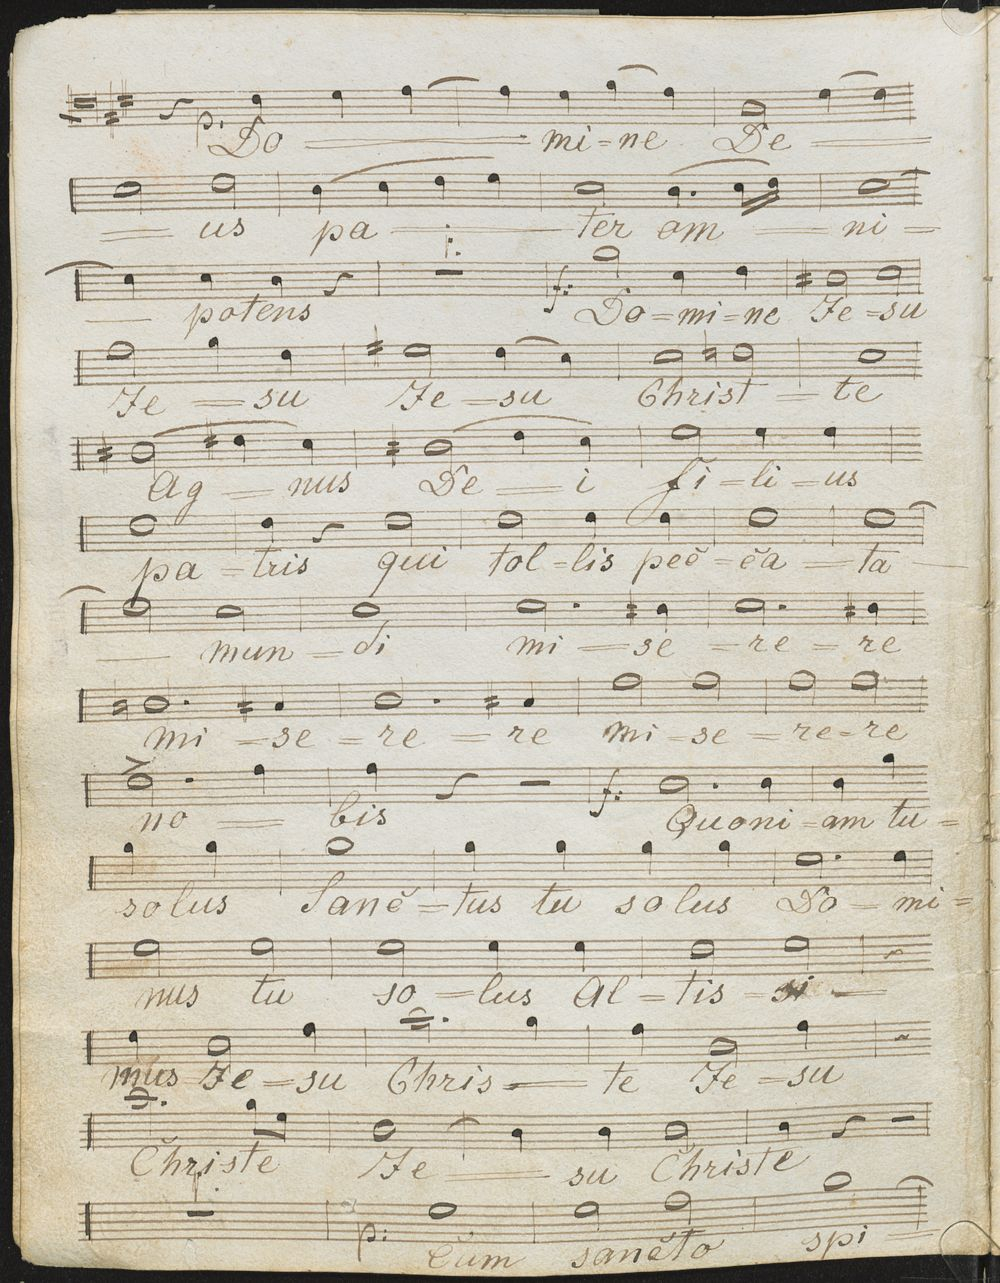 p. Do = mi=ne De =
= us pa = ter om = ni =
= potens f: Do=mi=ne Je=su
Je = su Je = su Christ = te
Ag = nus De = i fi=li=us
pa=tris qui tol=lis pec̆=c̆a = ta
mun=di mi = se = re = re
mi = se = re = re mi=se = re=re
no = bis f: Quoni=am tu =
solus Sanc̆=tus tu solus Do=mi=
nus tu so=lus Al=tis = si =
mus Je=su Chris = te Je=su
C̆hriste Je = su C̆hriste
p: C̆um sanc̆to spi =